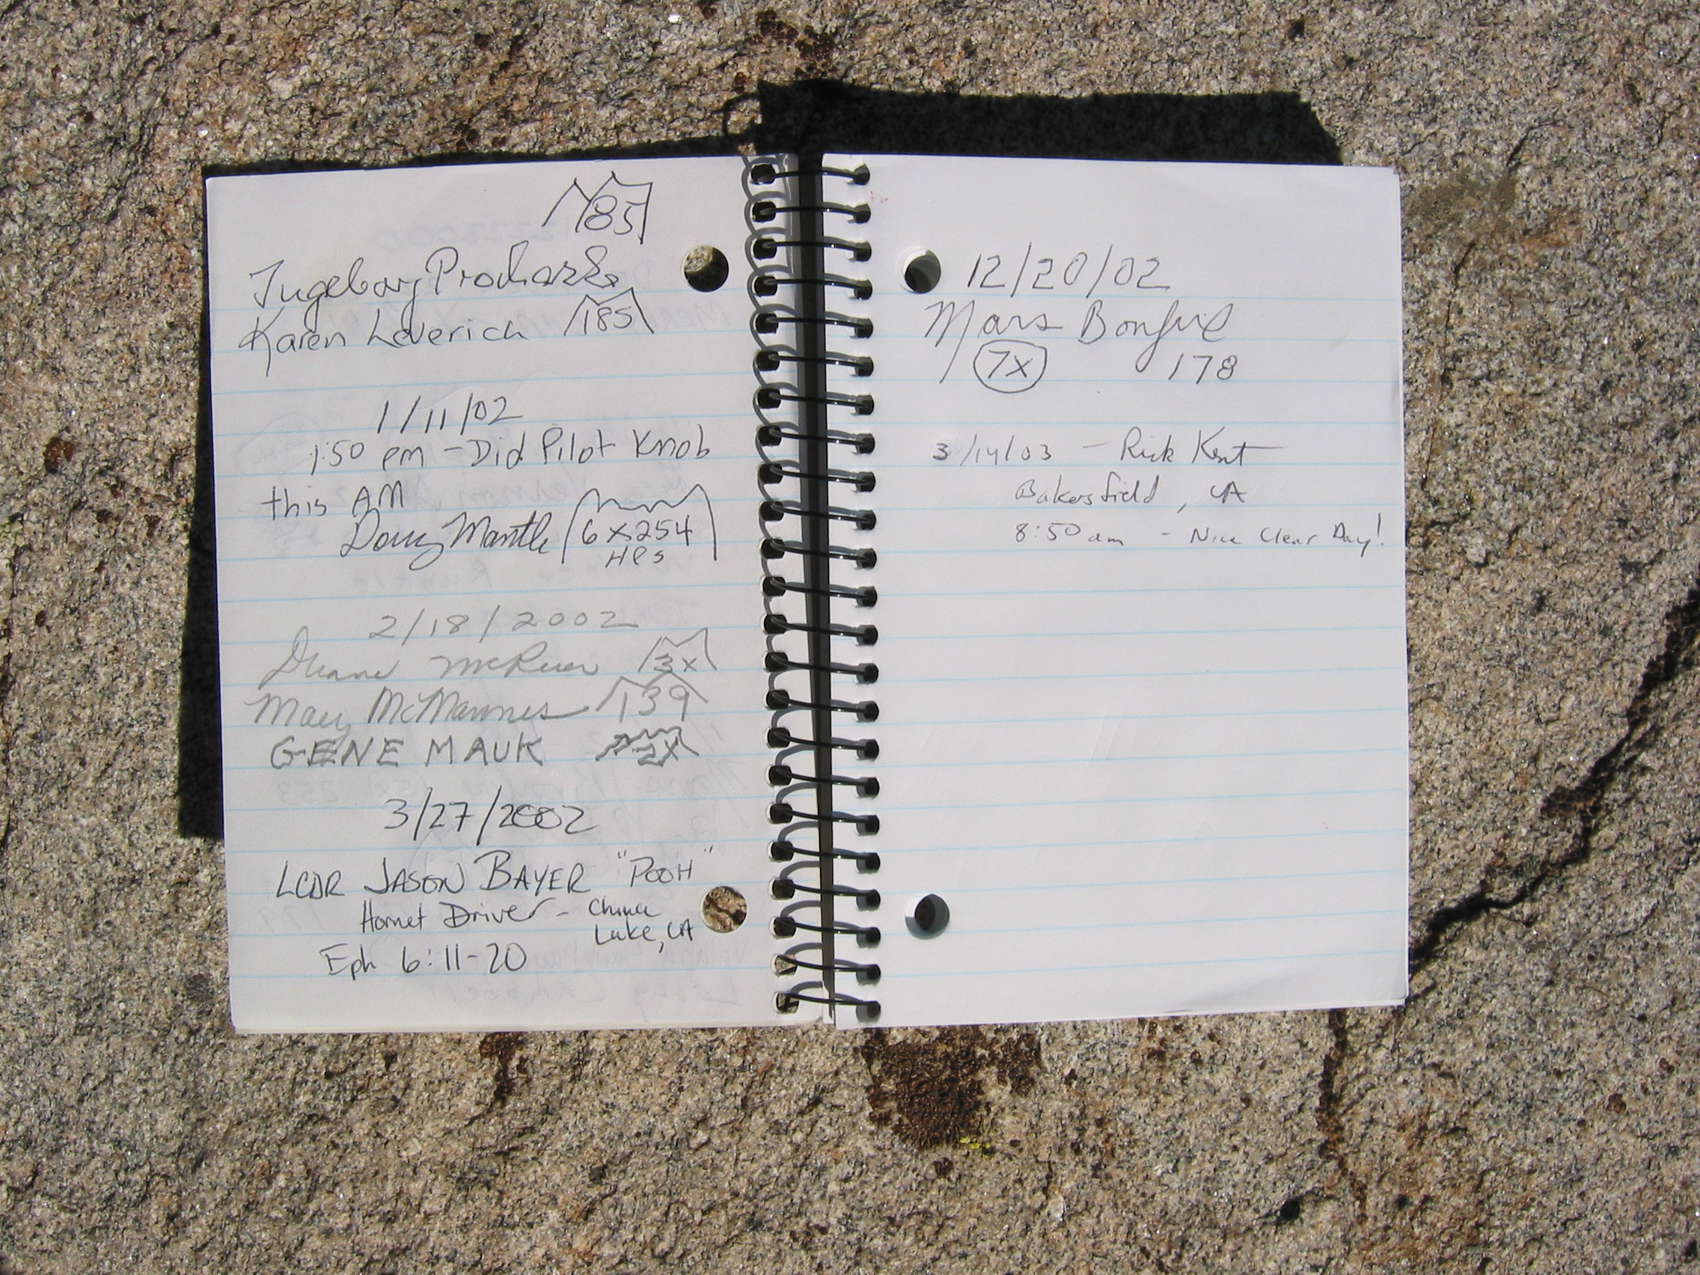 185
Ingeborg Prochazka
Karen Leverich 185
1/11/02
1:50 pm - Did Pilot Knob
this AM
Doug Mantle 6x254
HPS
2/18/2002
Dianne McRuer 3x
Mary McMannes 139
GENE MAUK 2x
3/27/2002
LCDR JASON BAYER "POOH"
Hornet Driver - China
Lake, CA
Eph 6:11-20
12/20/02
Mars Bonfire
7x 178
3/14/03 - Rick Kent
Bakersfield, CA
8:50 am - Nice Clear Day!